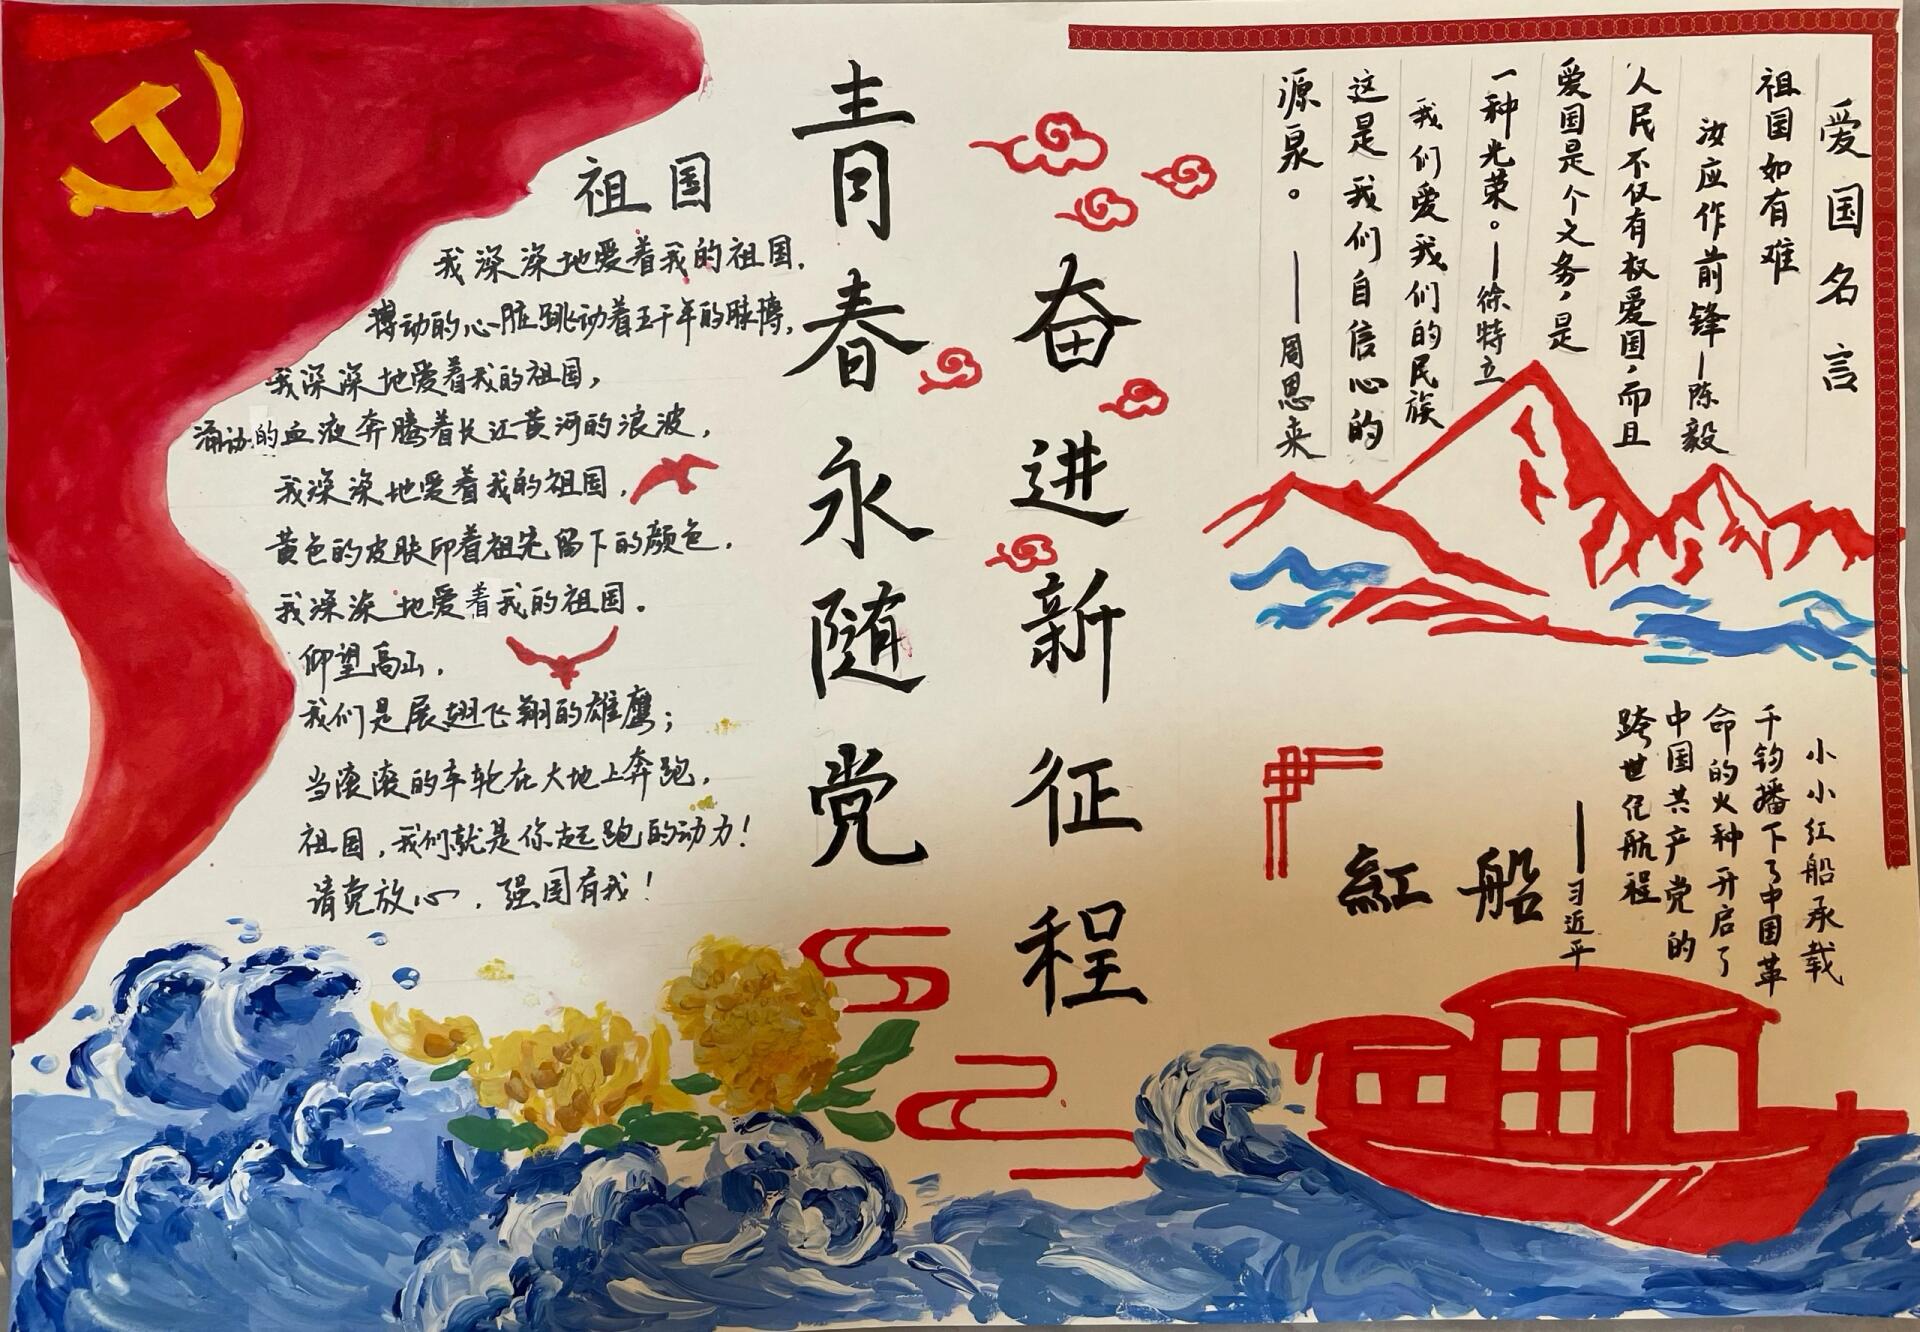 祖国
我深深地爱着我的祖国，
搏动的心脏跳动着五千年的脉搏，
我深深地爱着我的祖国，
涌动的血液奔腾着长江黄河的浪波，
我深深地爱着我的祖国，
黄色的皮肤印着祖先留下的颜色，
我深深地爱着我的祖国。
仰望高山，
我们是展翅飞翔的雄鹰；
当滚滚的车轮在大地上奔跑，
祖国，我们就是你起跑的动力！
请党放心，强国有我！
青春永随党
奋进新征程
爱国名言
祖国如有难
汝应作前锋—陈毅
人民不仅有权爱国，而且
爱国是个义务，是
一种光荣。—徐特立
我们爱我们的民族
这是我们自信心的
源泉。——周恩来
小小红船承载
千钧播下了中国革
命的火种开启了
中国共产党的
跨世纪航程
——习近平
紅船